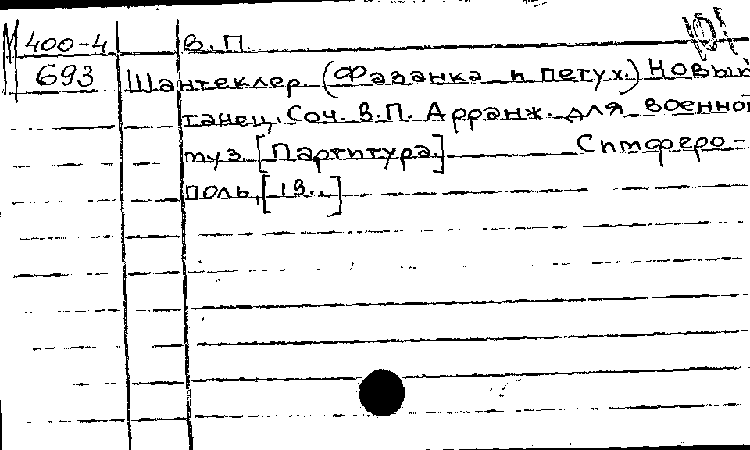 М 400-4 В.П. 101
693 Шантеклер. (Фазанка и петух.) Новый
танец. Соч. В.П. Арранж. для военной
муз. [Партитура.] Симферо-
поль, [19..]